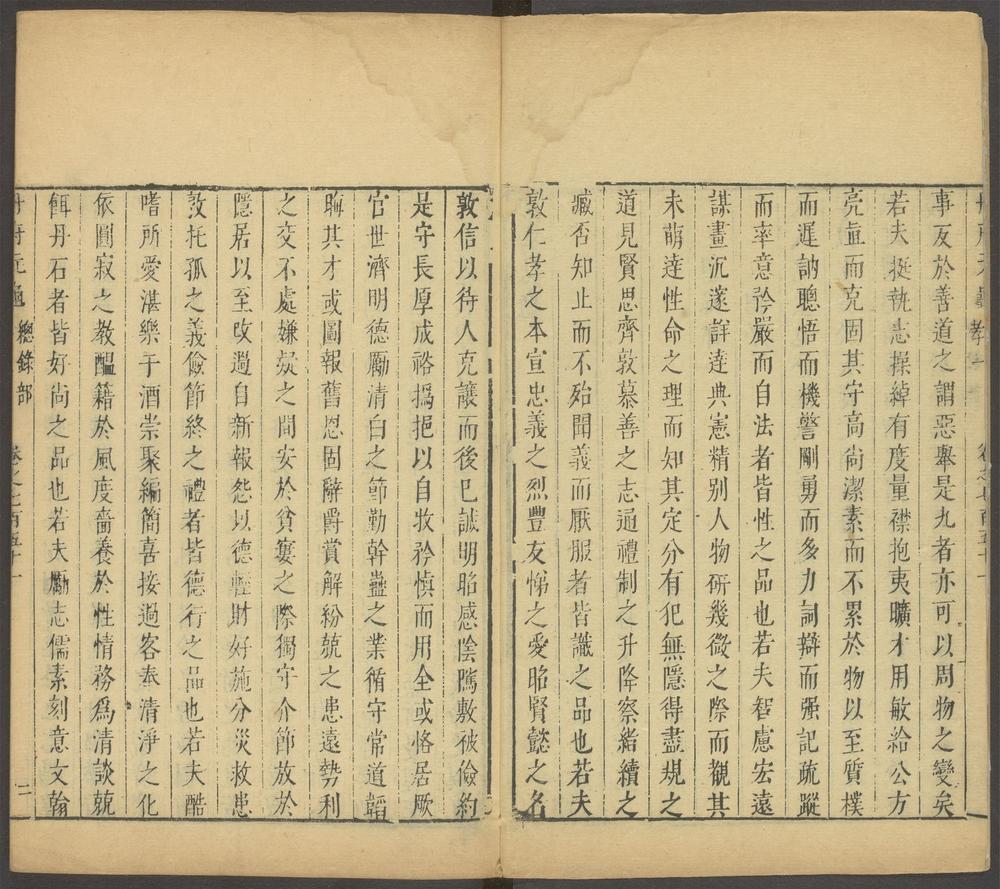 事友於善道之謂惡舉是九者亦可以周物之變矣
若夫挺執志操綽有度量襟抱夷曠才用敏給公方
亮直而克固其守高尚潔素而不累於物以至質樸
而遲訥聰悟而機警剛勇而多力詞辯而强記疏蹤
而率意矜嚴而自法者皆性之品也若夫智慮宏遠
謀畫沉邃詳達典憲精别人物研幾微之際而觀其
未萌達性命之理而知其定分有犯無隱得盡規之
道見賢思齊敦慕善之志通禮制之升降察緒續之
臧否知止而不殆聞義而厭服者皆識之品也若夫
敦仁孝之本宣忠義之烈豐友悌之愛昭賢懿之名
敦信以待人克讓而後已誠明昭感陰隲敷被儉約
是守長厚成裕撝挹以自牧矜慎而用全或恪居厥
官世濟明德勵清白之節勤幹蠱之業循守常道韜
晦其才或圖報舊恩固辭爵賞解紛兢之患遠勢利
之交不處嫌疑之間安於貧窶之際獨守介節放於
隱居以至改過自新報怨以德輕財好施分災救患
敦托孤之義儉節終之禮者皆德行之品也若夫酷
嗜所愛湛樂于酒崇聚編簡喜接過客奉清淨之化
依圓寂之教醞籍於風度嗇養於性情務爲清談競
餌丹石者皆好尚之品也若夫勵志儒素刻意文翰
册府元龜 總錄部 卷之七百五十一 二